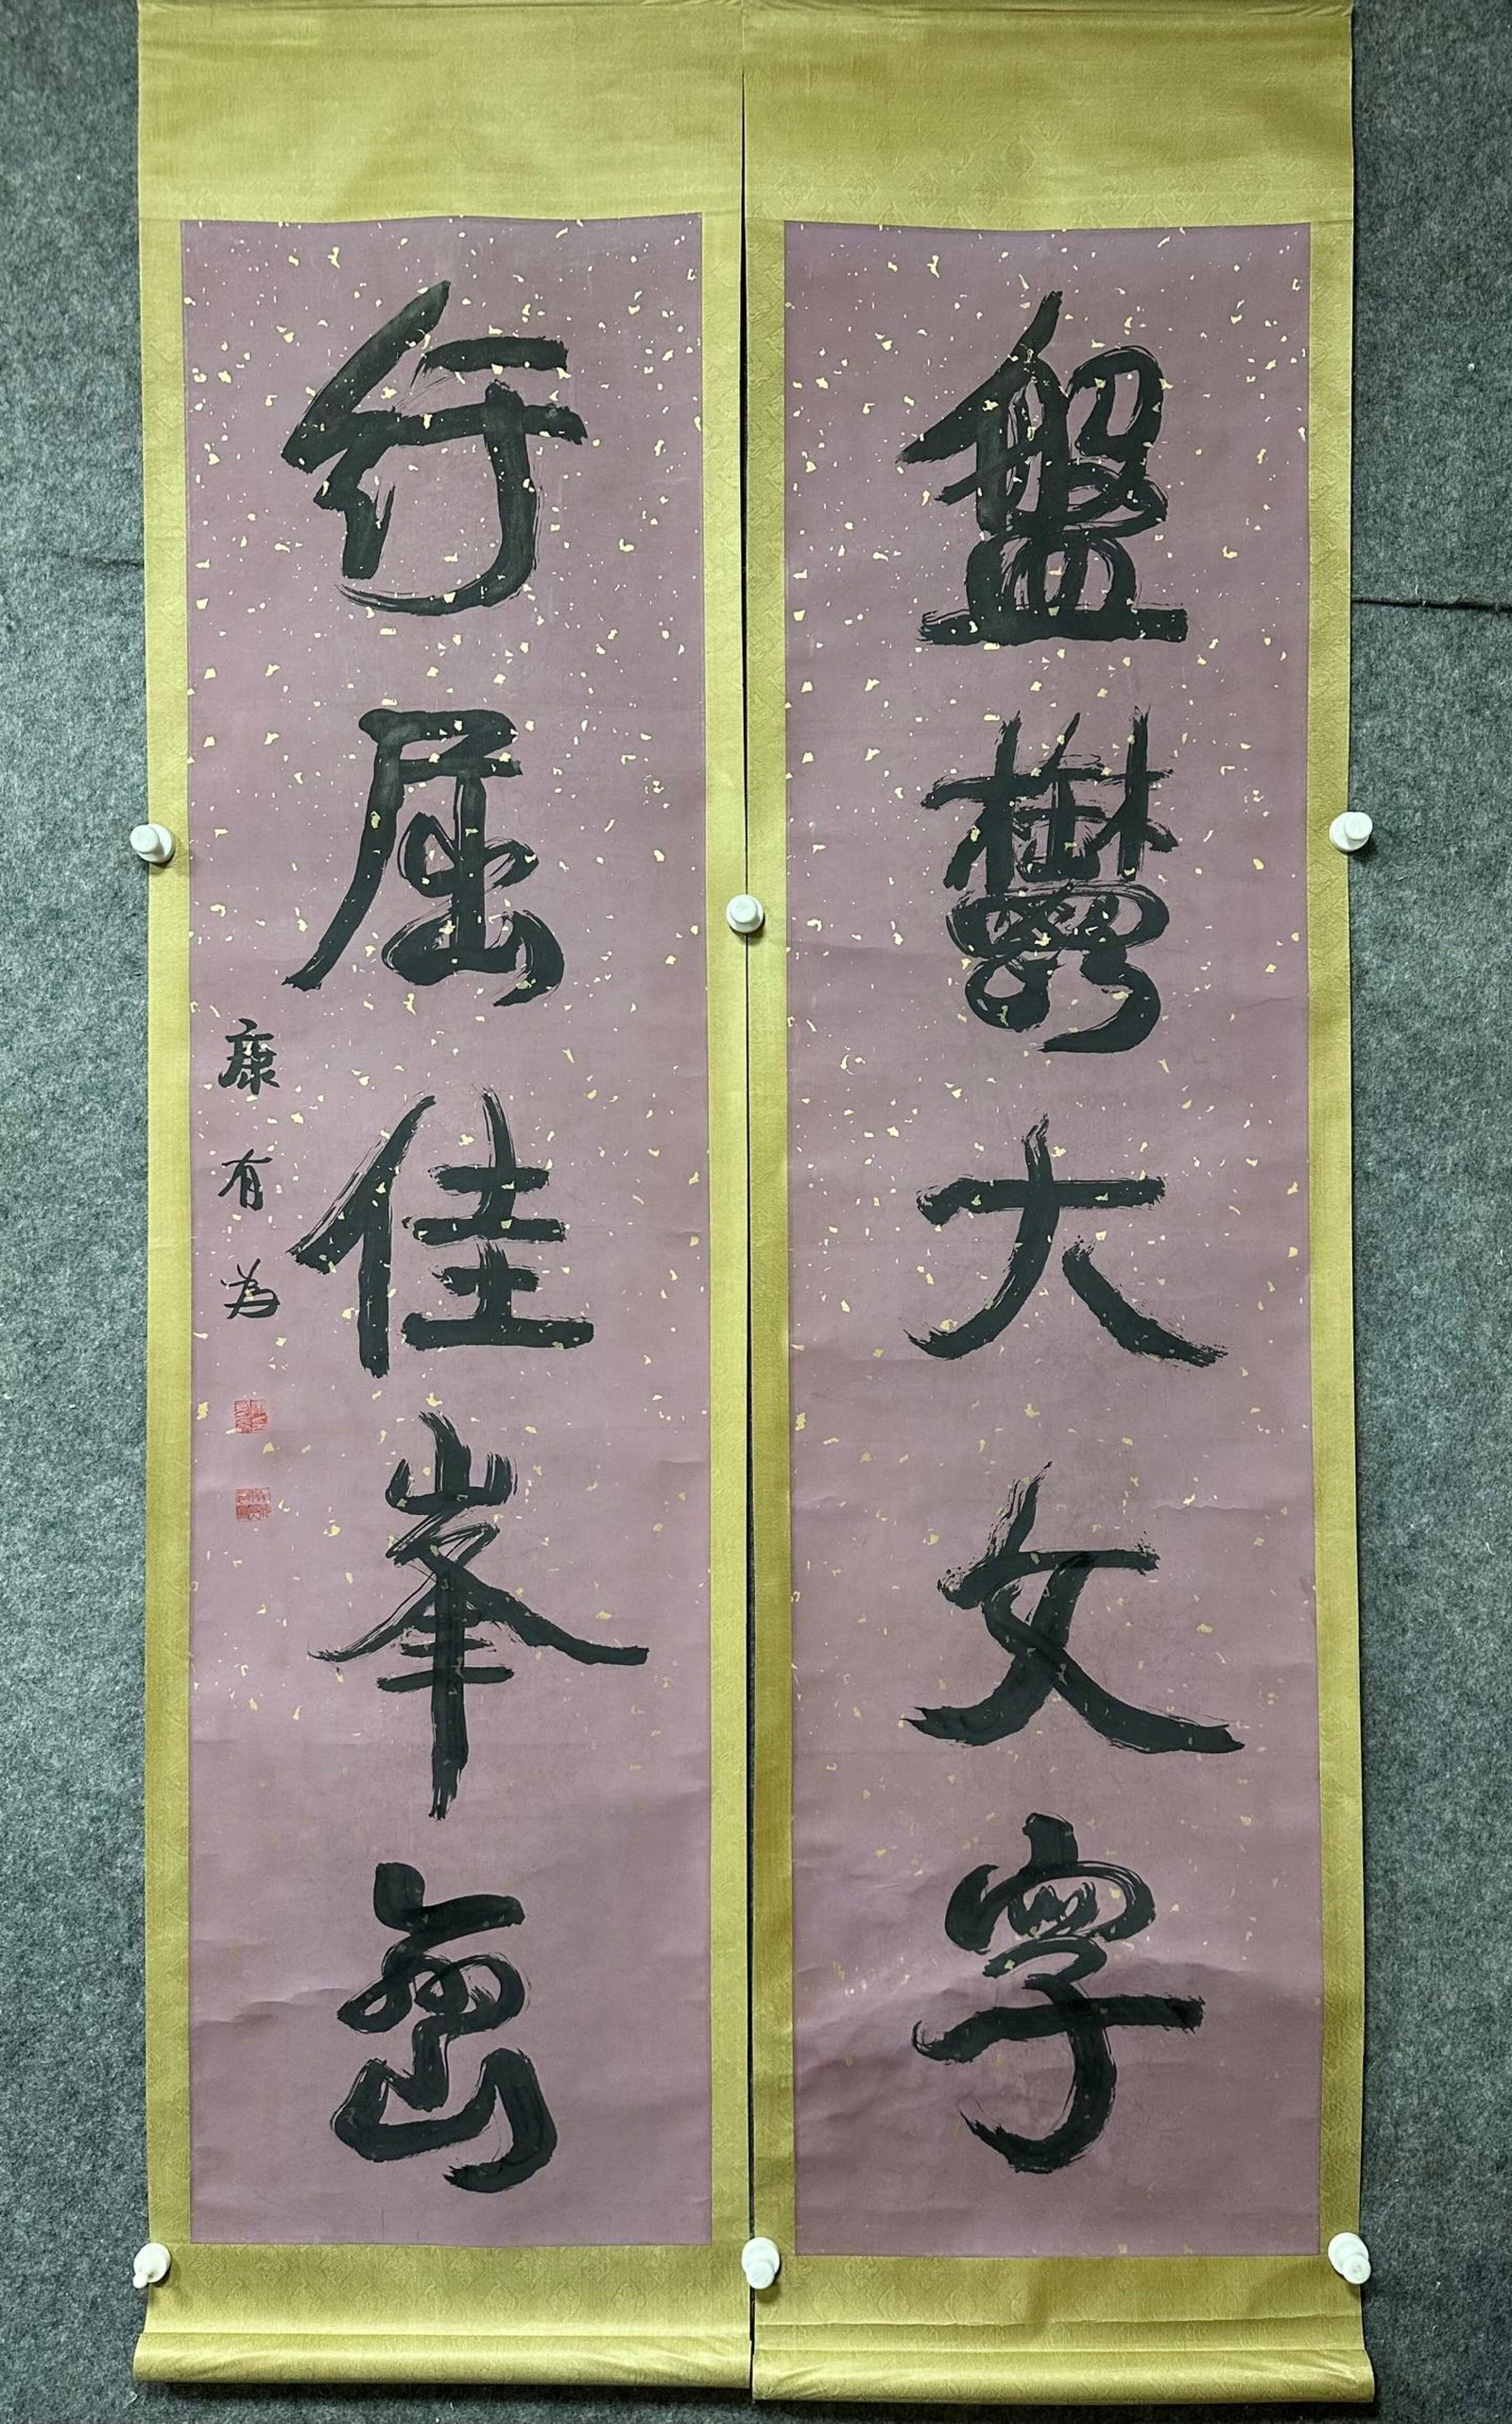 盤鬱大文字
行屈佳峯巒
康有為